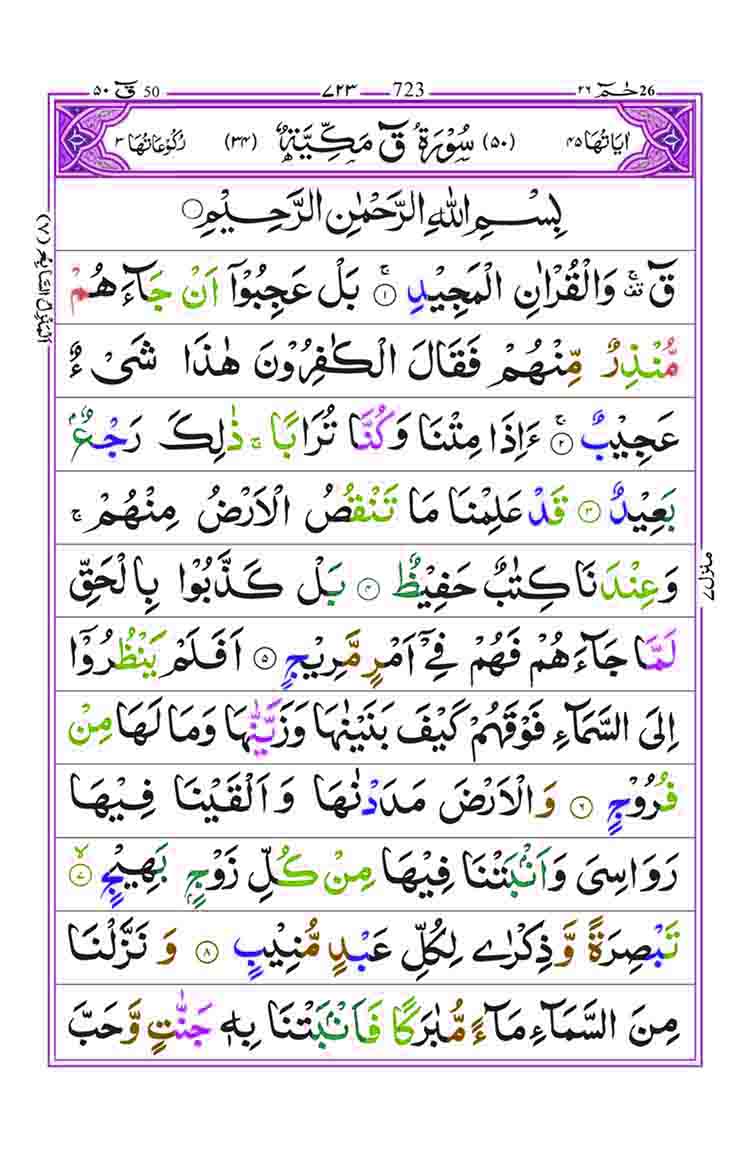 50 قٓ ۵۰ ۷۲۳ 723 ۲۶ حٰمٓ 26
اٰیَاتُهَا ۴۵ (۵۰) سُوْرَةُ قٓ مَكِّیَّةٌ (۳۴) رُكُوْعَاتُهَا ۳
بِسْمِ اللّٰهِ الرَّحْمٰنِ الرَّحِیْمِ۝
قٓ ۚ۫ وَالْقُرْاٰنِ الْمَجِیْدِ ۚ۝۱ بَلْ عَجِبُوْۤا اَنْ جَآءَهُمْ
مُّنْذِرٌ مِّنْهُمْ فَقَالَ الْكٰفِرُوْنَ هٰذَا شَیْءٌ
عَجِیْبٌ ۚ۝۲ ءَاِذَا مِتْنَا وَكُنَّا تُرَابًا ۚ ذٰلِكَ رَجْعٌۢ
بَعِیْدٌ ۝۳ قَدْ عَلِمْنَا مَا تَنْقُصُ الْاَرْضُ مِنْهُمْ ۚ
وَعِنْدَنَا كِتٰبٌ حَفِیْظٌ ۝۴ بَلْ كَذَّبُوْا بِالْحَقِّ
لَمَّا جَآءَهُمْ فَهُمْ فِیْۤ اَمْرٍ مَّرِیْجٍ ۝۵ اَفَلَمْ یَنْظُرُوْۤا
اِلَی السَّمَآءِ فَوْقَهُمْ كَیْفَ بَنَیْنٰهَا وَزَیَّنّٰهَا وَمَا لَهَا مِنْ
فُرُوْجٍ ۝۶ وَالْاَرْضَ مَدَدْنٰهَا وَاَلْقَیْنَا فِیْهَا
رَوَاسِیَ وَاَنْۢبَتْنَا فِیْهَا مِنْ كُلِّ زَوْجٍۭ بَهِیْجٍ ۙ۝۷
تَبْصِرَةً وَّذِكْرٰی لِكُلِّ عَبْدٍ مُّنِیْبٍ ۝۸ وَنَزَّلْنَا
مِنَ السَّمَآءِ مَآءً مُّبٰرَكًا فَاَنْۢبَتْنَا بِهٖ جَنّٰتٍ وَّحَبَّ
اَلْمَنْزِلُ السَّابِعُ (۷)
منزل ۷